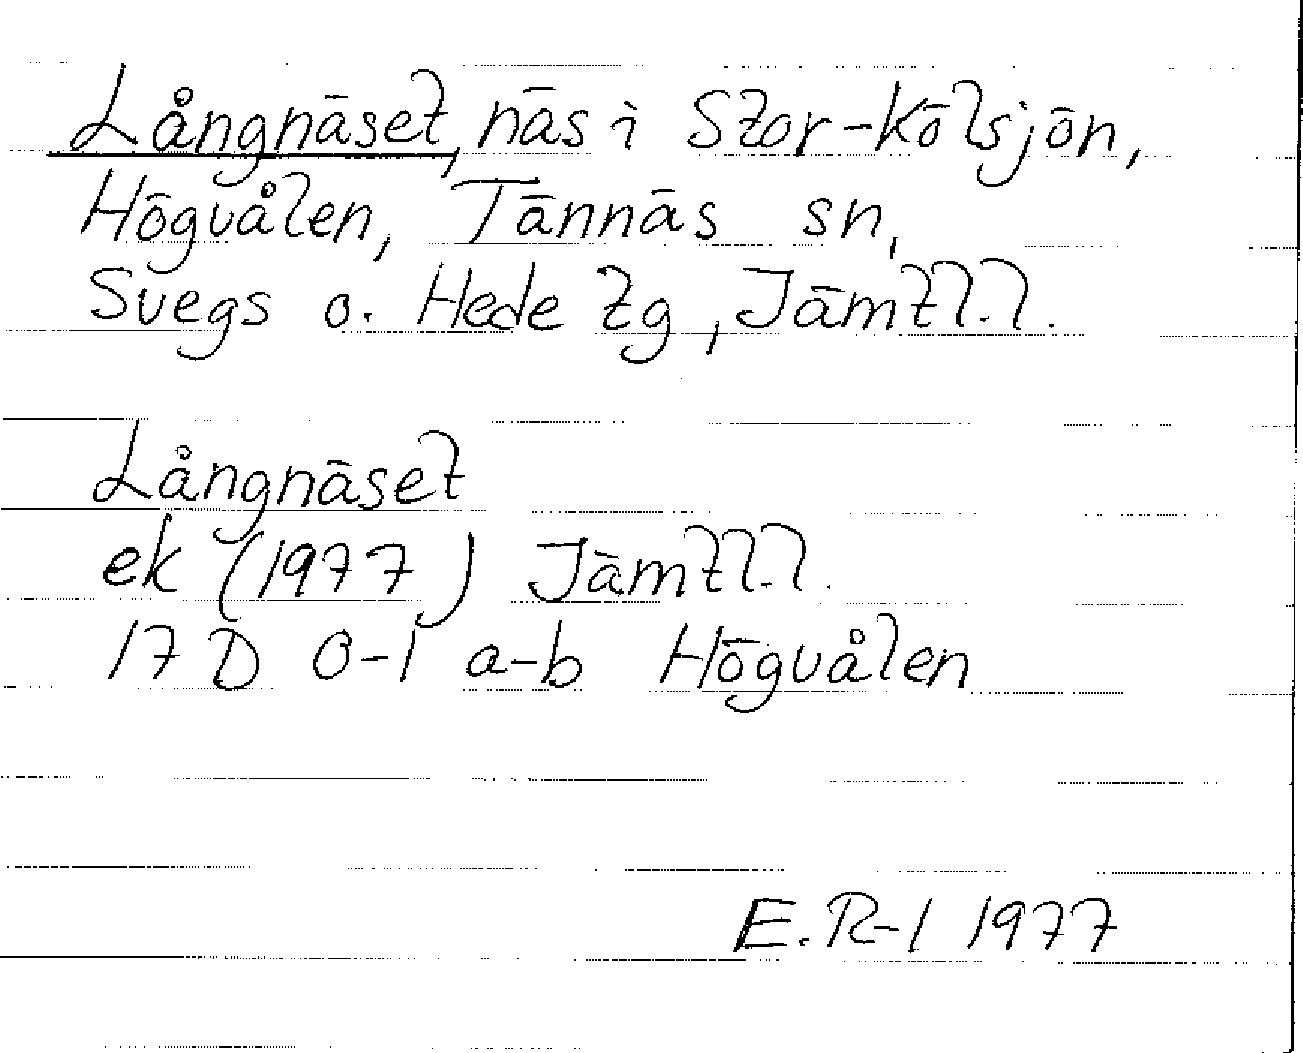 Långnäset, näs i Stor-Kölsjön,
Högvålen, Tännäs sn,
Svegs o. Hede tg, Jämtl.l.
Långnäset
ek (1977) Jämtl.l.
17 D 0-1 a-b Högvålen
E.R-l 1977